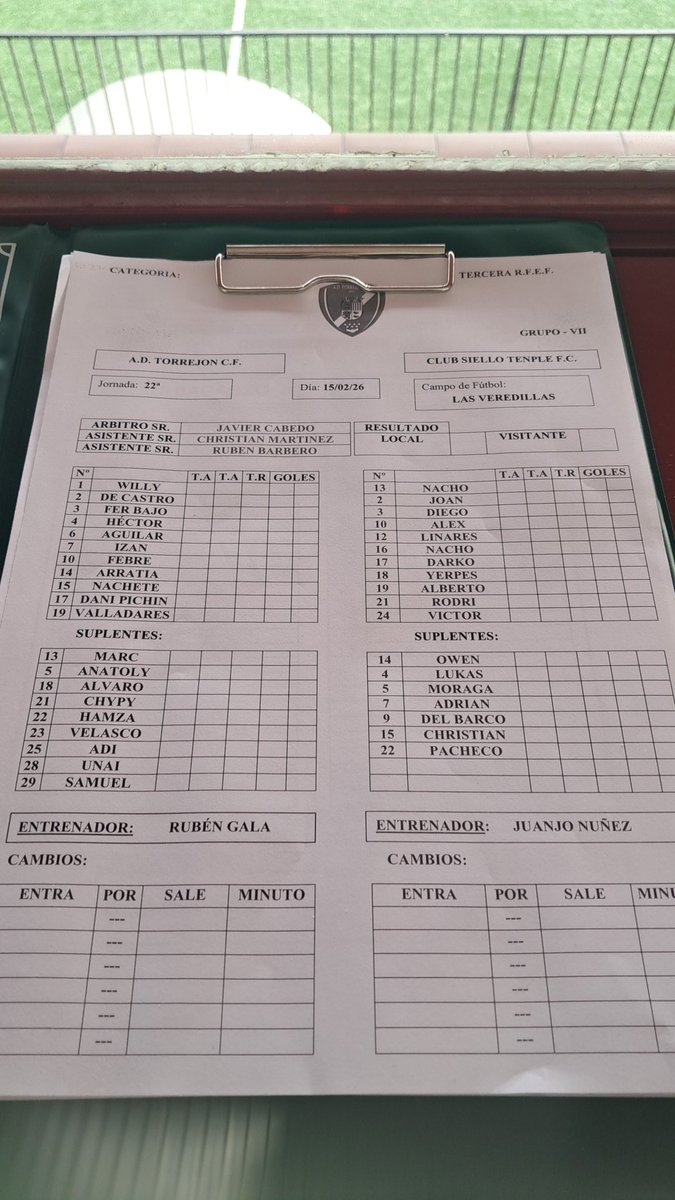 CATEGORIA:
TERCERA R.F.E.F.
GRUPO - VII
A.D. TORREJON C.F.
CLUB SIELLO TENPLE F.C.
Jornada: 22ª
Día: 15/02/26
Campo de Fútbol:
LAS VEREDILLAS
ARBITRO SR. JAVIER CABEDO
ASISTENTE SR. CHRISTIAN MARTINEZ
ASISTENTE SR. RUBEN BARBERO
RESULTADO
LOCAL VISITANTE
Nº T.A T.A T.R GOLES
1 WILLY
2 DE CASTRO
3 FER BAJO
4 HÉCTOR
6 AGUILAR
7 IZAN
10 FEBRE
14 ARRATIA
15 NACHETE
17 DANI PICHIN
19 VALLADARES
SUPLENTES:
13 MARC
5 ANATOLY
18 ALVARO
21 CHYPY
22 HAMZA
23 VELASCO
25 ADI
28 UNAI
29 SAMUEL
ENTRENADOR: RUBÉN GALA
CAMBIOS:
ENTRA POR SALE MINUTO
---
---
---
---
---
---
Nº T.A T.A T.R GOLES
13 NACHO
2 JOAN
3 DIEGO
10 ALEX
12 LINARES
16 NACHO
17 DARKO
18 YERPES
19 ALBERTO
21 RODRI
24 VICTOR
SUPLENTES:
14 OWEN
4 LUKAS
5 MORAGA
7 ADRIAN
9 DEL BARCO
15 CHRISTIAN
22 PACHECO
ENTRENADOR: JUANJO NUÑEZ
CAMBIOS:
ENTRA POR SALE MINU
---
---
---
---
---
---